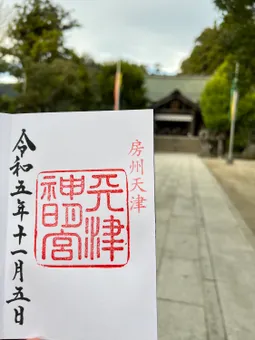 房州天津
天津
神明宮
令和五年十一月五日